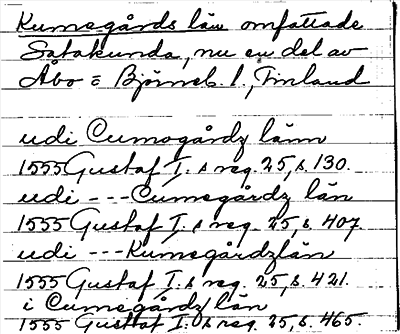 Kumegårds län omfattade
Satakunda, nu en del av
Åbo = Björneb. l., Finland
udi Cumogårdz länn
1555 Gustaf I. s reg. 25, s. 130.
udi --- Cumegårdz län
1555 Gustaf I. s reg. 25, s. 407.
udi --- Kumegårdzlän
1555 Gustaf I. s reg. 25, s. 421.
i Cumegårdz län
1555 Gustaf I. s reg. 25, s. 465.